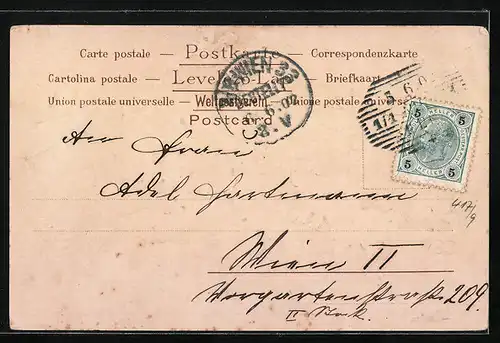 Carte postale — Postkarte — Correspondenzkarte
Cartolina postale — Levelező-Lap — Briefkaart
Union postale universelle — Weltpostverein. — Unione postale universale
Postcard
WIEN
6. 02
An Frau
Adel Hartmann
Wien II
Vorgartenstraße 209.
II Stock.
5 HELLER 5
5 HELLER 5
417/9